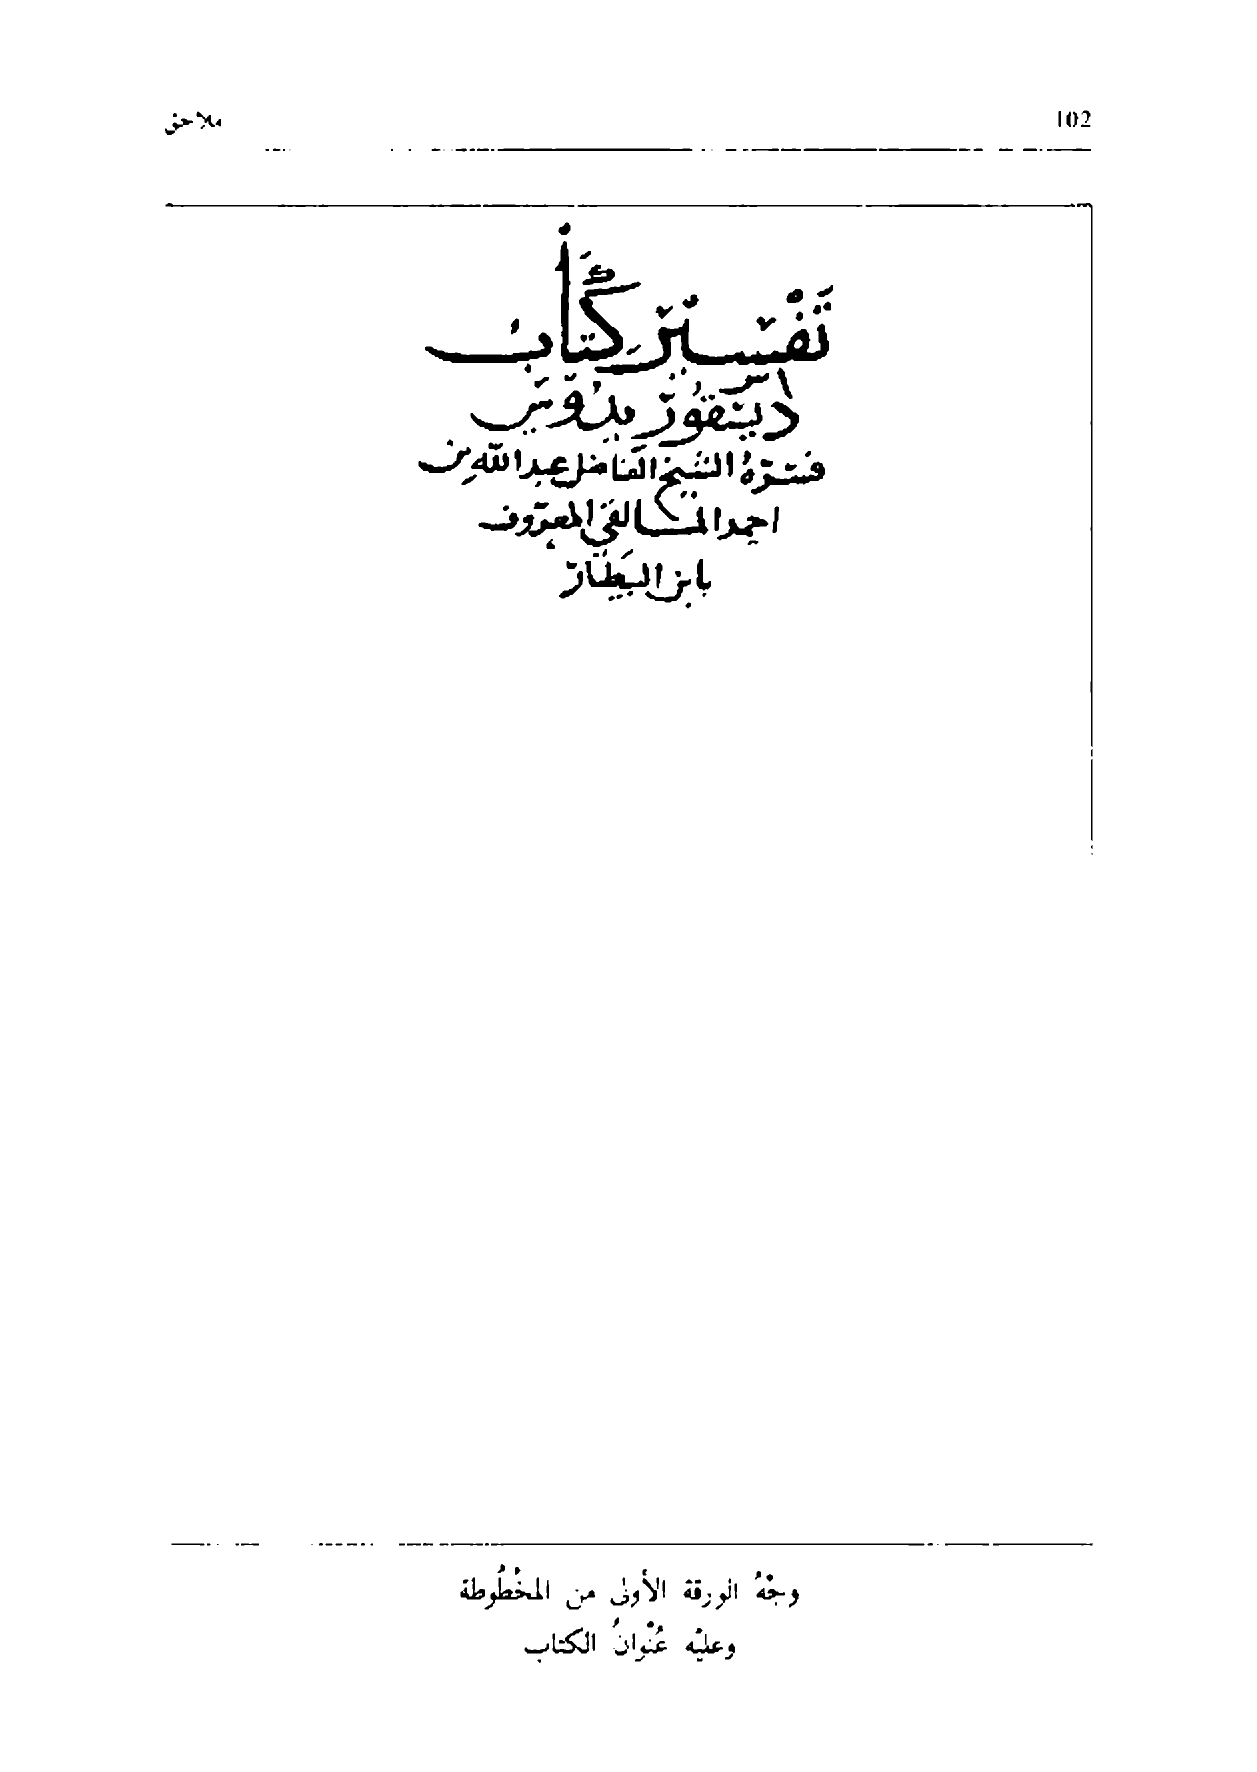 102
ملاحق
تَفْسِيْر كِتَابُ
دِيسْقُورِيدُوس
فسّرهُ الشيخ الفاضل عبد الله بن
احمد المالقي المعروف
بابن البيطار
وجْهُ الورقة الأولى من المخْطُوطة
وعليْه عُنْوانُ الكتاب